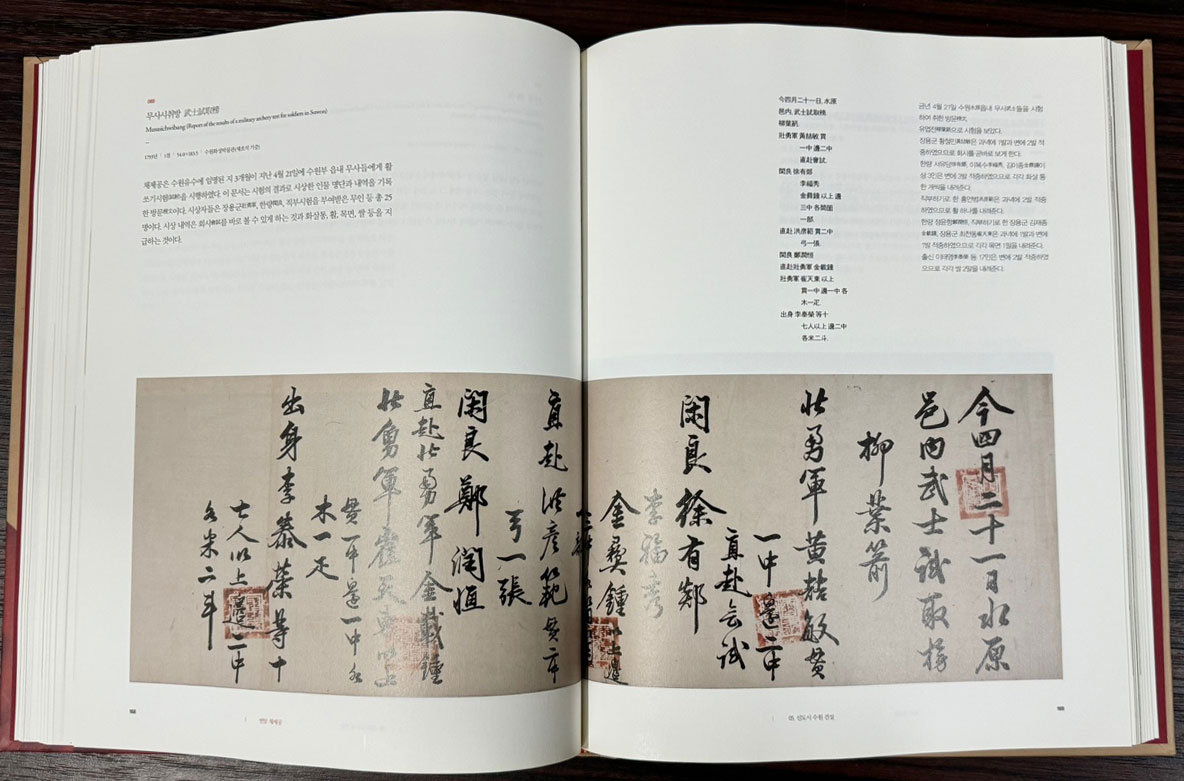 무사시취방 武士試取榜
Musasichwibang (Report of the results of a military archery test for soldiers in Suwon)
1793년 | 1점 | 54.6×183.5 | 수원화성박물관(채호석 기증)
채제공은 수원유수에 임명된 지 5개월이 지난 4월 21일에 수원부 읍내 무사들에게 활
쏘기시험을 시행하였다. 이 문서는 시험의 결과로 시상한 인물 명단과 내역을 기록
한 방문榜文이다. 시상자들은 장용군壯勇軍, 한량閑良, 직부시험을 부여받은 무인 등 총 25
명이다. 시상 내역은 회시會試를 바로 볼 수 있게 하는 것과 화살통, 활, 목면, 쌀 등을 지
급하는 것이다.
번암 채제공
今四月二十一日, 水原
邑内, 武士試取榜.
柳葉箭.
壯勇軍 黃喆敏 貫
一中 邊二中
直赴會試.
閑良 徐有郯
李福秀
金彛鍾 以上 邊
三中 各筒箇
一部.
直赴 洪彦範 貫二中
弓一張.
閑良 鄭潤恒
直赴壯勇軍 金載鍾
壯勇軍 崔天東 以上
貫一中 邊一中 各
木一疋.
出身 李泰榮 等十
七人以上 邊二中
各米二斗.
금년 4월 21일 수원水原읍내 무사武士들을 시험
하여 취한 방문榜文.
유엽전柳葉箭으로 시험을 보았다.
장용군 황철민黃喆敏은 과녁에 1발과 변에 2발 적
중하였으므로 회시를 곧바로 보게 한다.
한량 서유담徐有郯, 이복수李福秀, 김이종金彛鍾이
상 3인은 변에 2발 적중하였으므로 각각 화살 통
한 개씩을 내려준다.
직부하기로 한 홍언범洪彦範은 과녁에 2발 적중
하였으므로 활 하나를 내려준다.
한량 정윤항鄭潤恒, 직부하기로 한 장용군 김재종
金載鍾, 장용군 최천동崔天東은 과녁에 1발과 변에
1발 적중하였으므로 각각 목면 1필을 내려준다.
출신 이태영李泰榮 등 17인은 변에 2발 적중하였
으므로 각각 쌀 2말을 내려준다.
今四月二十一日水原
邑内武士試取榜
柳葉箭
壯勇軍黃喆敏貫
一中邊二中
直赴会試
閑良徐有郯
李福秀
金彛鍾以上邊
直赴洪彦範貫二中
弓一張
閑良鄭潤恒
直赴壯勇軍金載鍾
壯勇軍崔天東以上
貫一中邊一中各
木一疋
出身李泰榮等十
七人以上邊二中
各米二斗